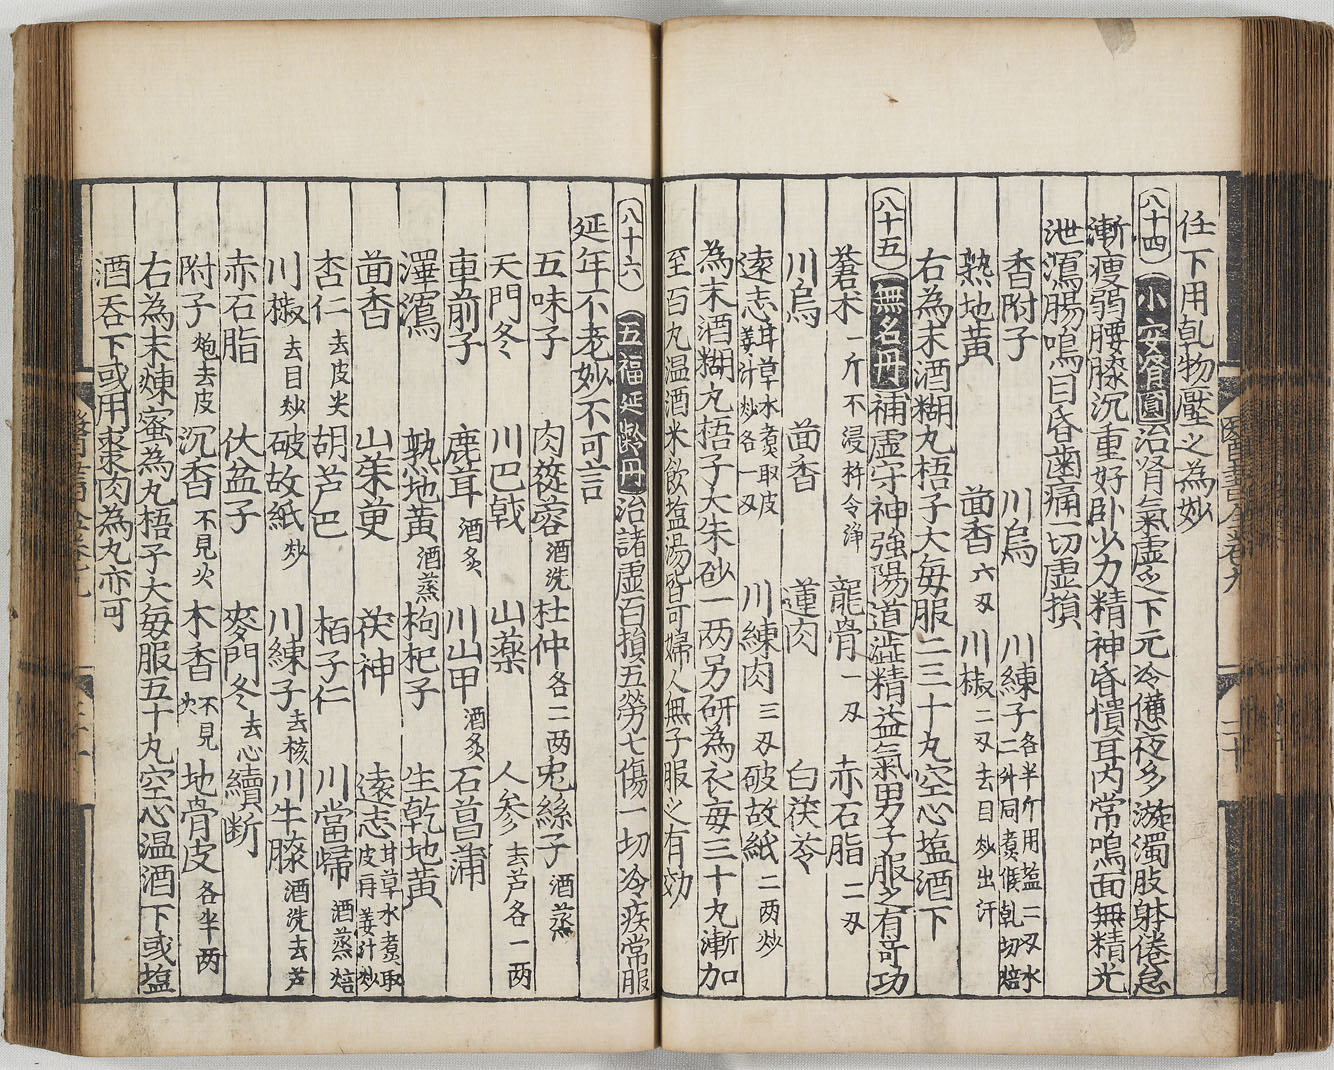 任下用乹物壓之為妙
八十四 小安腎圓 治腎氣虛乏下元冷憊夜多漩濁肢躰倦怠
漸瘦弱腰膝沉重好卧少力精神昏憒耳內常鳴面無精光
泄瀉腸鳴目昏齒痛一切虛損
香附子 川烏 川練子各半斤用盐二刄水二升同煑候乹切焙
熟地黃 茴香六刄 川椒二刄去目炒出汗
右為末酒糊丸梧子大每服二三十丸空心塩酒下
八十五 無名丹 補虛守神強陽道澁精益氣男子服之有竒功
蒼术一斤不浸杵令淨 龍骨一刄 赤石脂二刄
川烏 茴香 蓮肉 白茯苓
遠志甘草水煑取皮姜汁炒各一刄 川練肉三刄 破故紙二两炒
為末酒糊丸梧子大朱砂一两另研為衣每三十丸漸加
至百丸温酒米飲塩湯皆可婦人無子服之有効
八十六 五福延齡丹 治諸虛百損五勞七傷一切冷疾常服
延年不老妙不可言
五味子 肉蓯蓉酒洗 杜仲各二两 兔絲子酒蒸
天門冬 川巴戟 山藥 人参去芦各一两
車前子 鹿茸酒炙 川山甲酒炙 石菖蒲
澤瀉 熟地黃酒蒸 枸杞子 生乾地黃
茴香 山茱萸 茯神 遠志甘草水煑取皮再姜汁炒
杏仁去皮尖 胡芦巴 栢子仁 川當歸酒蒸焙
川椒去目炒 破故紙炒 川練子去核 川牛膝酒洗去芦
赤石脂 伏盆子 麥門冬去心 續断
附子炮去皮 沉香不見火 木香不見火 地骨皮各半两
右為末煉蜜為丸梧子大每服五十丸空心温酒下或塩
酒吞下或用隶肉為丸亦可